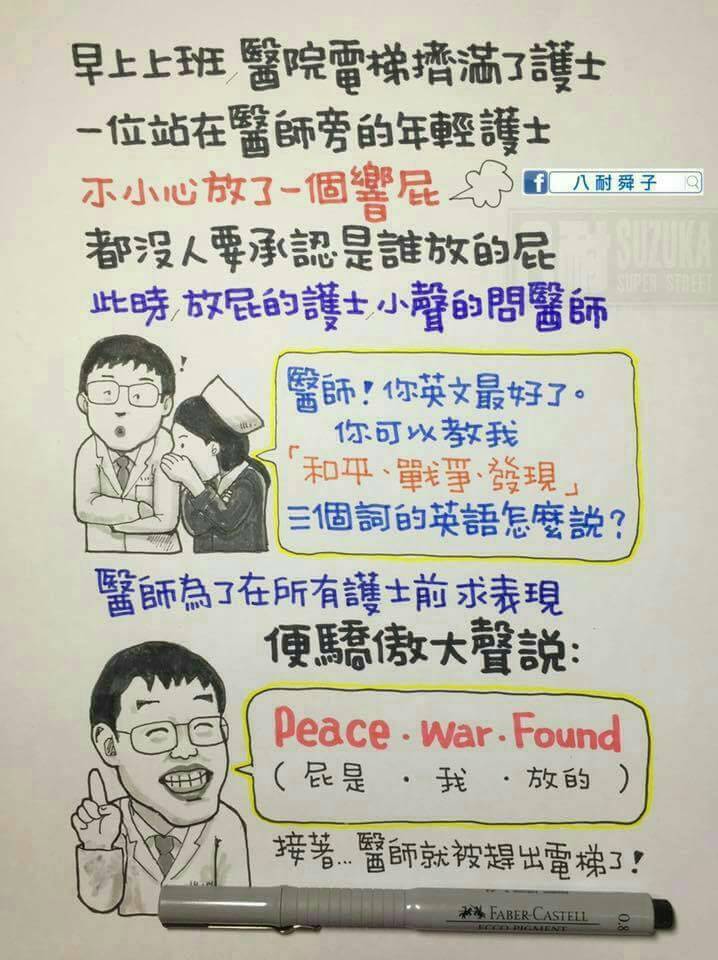 早上上班,醫院電梯擠滿了護士
一位站在醫師旁的年輕護士
不小心放了一個響屁
八耐舜子
都沒人要承認是誰放的屁
SUZUKA
SUPER STREET
此時,放屁的護士,小聲的問醫師
!
醫師!你英文最好了。
你可以教我
「和平、戰爭、發現」
三個詞的英語怎麼說?
醫師為了在所有護士前求表現
便驕傲大聲說:
Peace·War·Found
(屁是·我·放的)
接著...醫師就被趕出電梯了!
FABER-CASTELL
ECCO PIGMENT
0.8